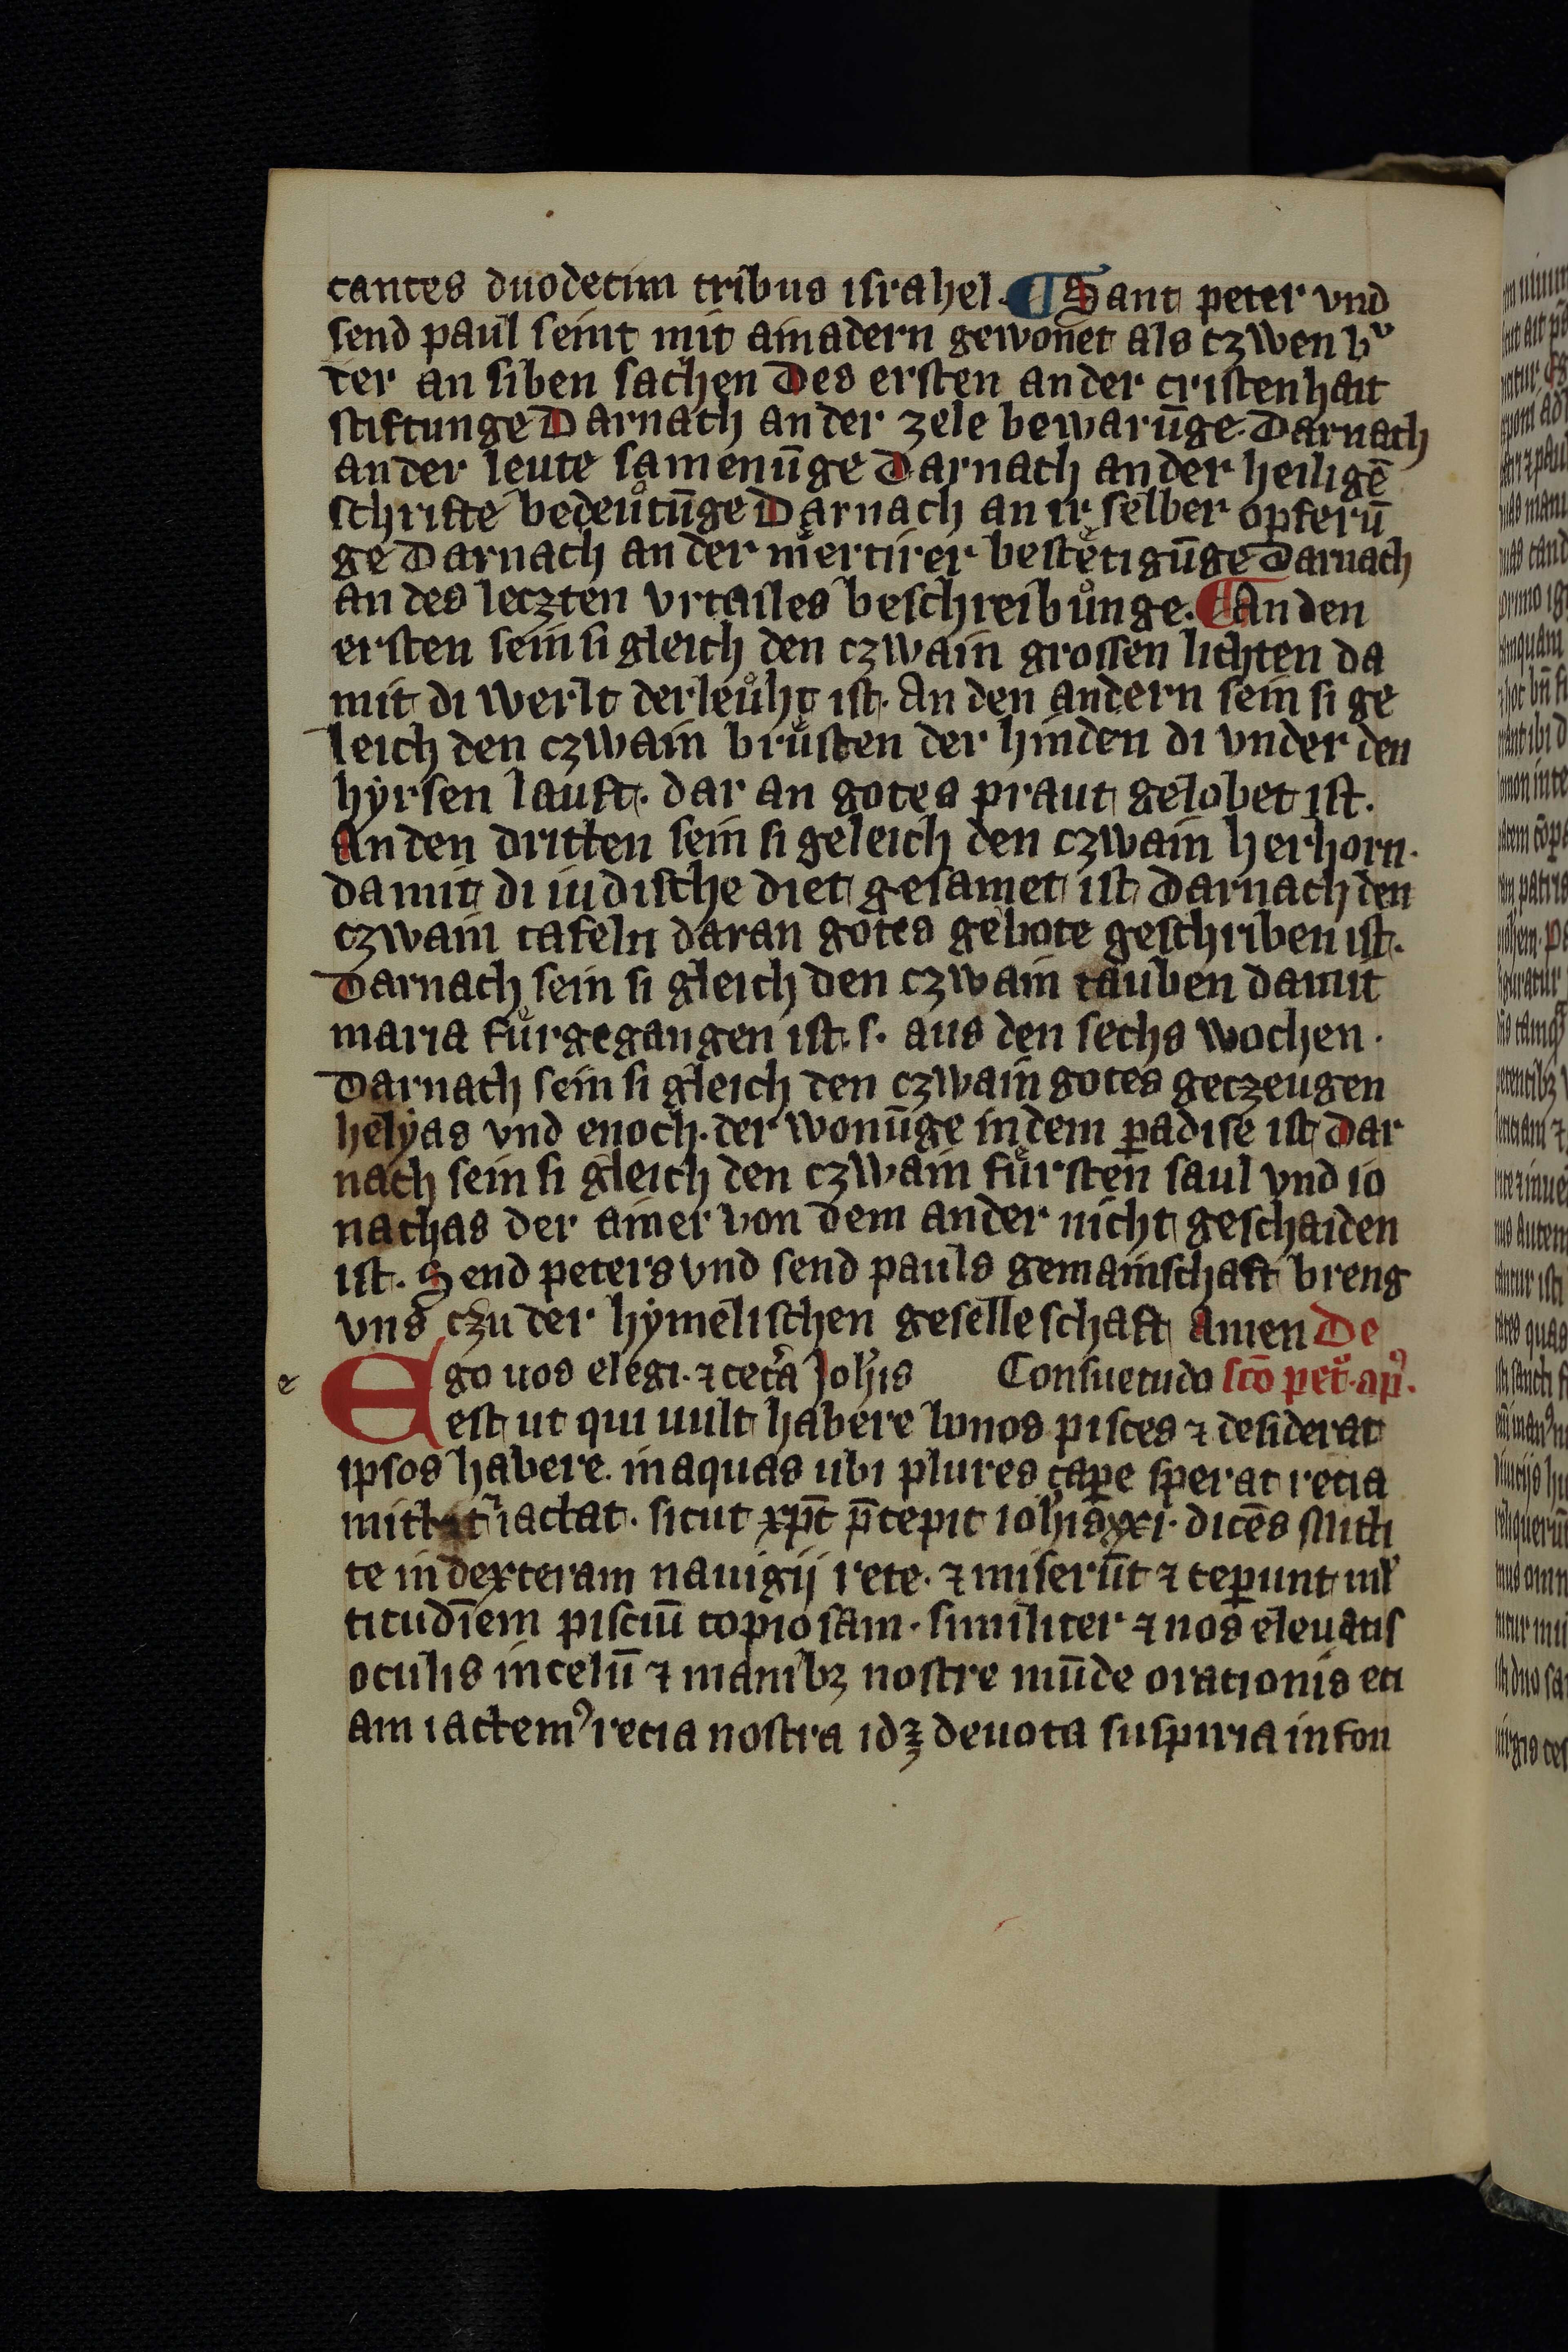 cantes duodecim tribus israhel. ¶ Sant peter vnd
send paul seint mit ainadern gewonet als czwen bͮ
der an siben sachen Des ersten an der cristenhait
stiftunge Darnach an der zele bewarūge. Darnach
an der leute samenūge Darnach an der heiligē
schrifte bedeůtūge Darnach an ir selber opferū
ge Darnach an der mertirer bestetigūge Darnach
an des leczten vrtailes beschreibůnge. ¶ An den
ersten sein si gleich den czwain grossen lichten da
mit di werlt derleůht ist. An den andern sein si ge
leich den czwain brůsten der hinden di vnder den
hyrsen lauft. dar an gotes praut gelobet ist.
An den dritten sein si geleich den czwain herhorn.
damit di iudische diet gesamet ist Darnach den
czwain tafeln daran gotes gebote geschriben ist.
Darnach sein si gleich den czwain tauben damit
maria fuͤrgegangen ist. s. aus den sechs wochen.
Darnach sein si gleich den czwain gotes geczeugen
helyas vnd enoch. der wonūge in dem ꝑadise ist Dar
nach sein si gleich den czwain fuͤrsten saul vnd io
nathas der ainer von dem ander nicht geschaiden
ist. Send peters vnd send pauls gemainschaft breng
vns czu der hymelischen geselleschaft Amen De
e Ego uos elegi. ⁊ cetͣa Joh̓is Consuetudo sc̄o pet͛. ap̓.
est ut qui uult habere bonos pisces ⁊ desiderat
ipsos habere. in aquas ubi plures caꝑe sperat retia
mittat ⁊ iactat. sicut xp̄c p̄cepit ioh̓is xxi. dicēs Mitti
te in dexteram nauigij rete. ⁊ miserūt ⁊ ceꝑunt ml̓
titudīem pisciū copiosam. similiter ⁊ nos eleuatis
oculis in celū ⁊ manibꝫ nostre mūde orationis eti
am iactemꝰ retia nostra idꝫ deuota suspiria in fon